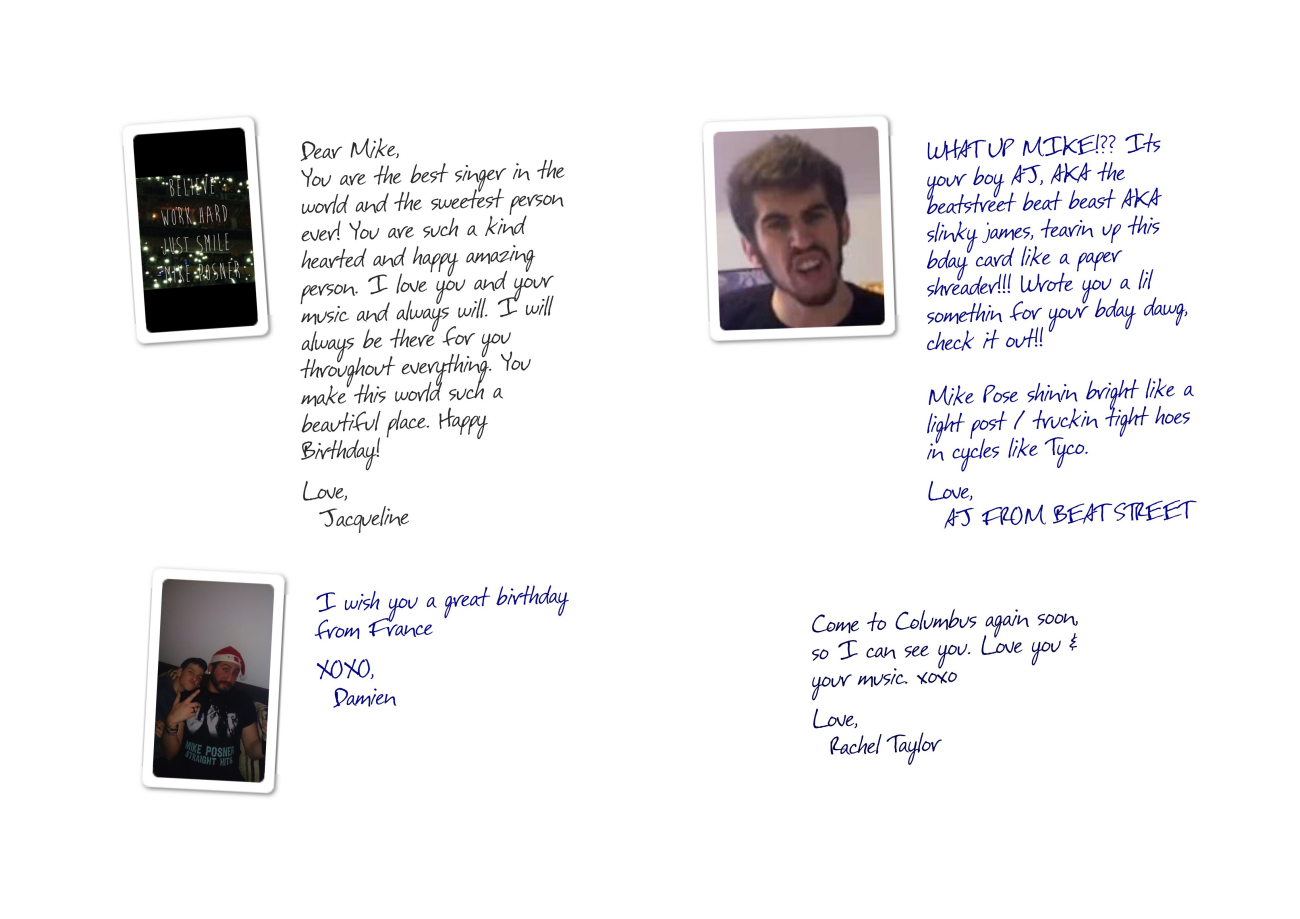 BELIEVE
WORK HARD
JUST SMILE
-MIKE POSNER
Dear Mike,
You are the best singer in the
world and the sweetest person
ever! You are such a kind
hearted and happy amazing
person. I love you and your
music and always will. I will
always be there for you
throughout everything. You
make this world such a
beautiful place. Happy
Birthday!
Love,
Jacqueline
WHAT UP MIKE!?? Its
your boy AJ, AKA the
beatstreet beat beast AKA
slinky james, tearin up this
bday card like a paper
shreader!!! Wrote you a lil
somethin for your bday dawg,
check it out!!
Mike Pose shinin bright like a
light post / truckin tight hoes
in cycles like Tyco.
Love,
AJ FROM BEATSTREET
MIKE POSNER
STRAIGHT HITS
I wish you a great birthday
from France
XOXO,
Damien
Come to Columbus again soon,
so I can see you. Love you &
your music. xoxo
Love,
Rachel Taylor